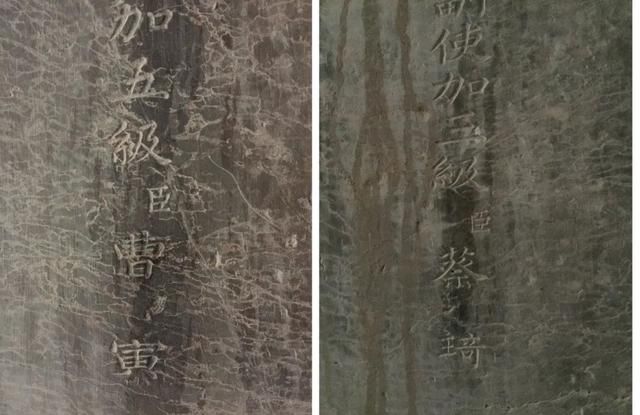 加五級臣曹寅
副使加五級臣蔡琦